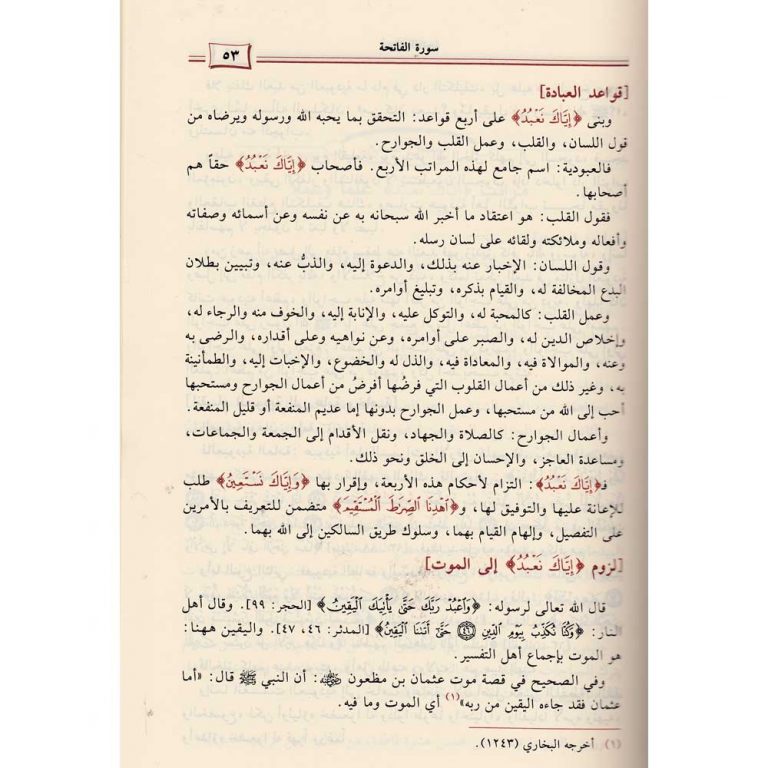 سورة الفاتحة
٥٣
[قواعد العبادة]
وبنى ﴿إِيَّاكَ نَعْبُدُ﴾ على أربع قواعد: التحقق بما يحبه الله ورسوله ويرضاه من
قول اللسان، والقلب، وعمل القلب والجوارح.
فالعبودية: اسم جامع لهذه المراتب الأربع. فأصحاب ﴿إِيَّاكَ نَعْبُدُ﴾ حقاً هم
أصحابها.
فقول القلب: هو اعتقاد ما أخبر الله سبحانه به عن نفسه وعن أسمائه وصفاته
وأفعاله وملائكته ولقائه على لسان رسله.
وقول اللسان: الإخبار عنه بذلك، والدعوة إليه، والذبُّ عنه، وتبيين بطلان
البدع المخالفة له، والقيام بذكره، وتبليغ أوامره.
وعمل القلب: كالمحبة له، والتوكل عليه، والإنابة إليه، والخوف منه والرجاء له،
وإخلاص الدين له، والصبر على أوامره، وعن نواهيه وعلى أقداره، والرضى به
وعنه، والموالاة فيه، والمعاداة فيه، والذل له والخضوع، والإخبات إليه، والطمأنينة
به، وغير ذلك من أعمال القلوب التي فرضُها أفرضُ من أعمال الجوارح ومستحبها
أحب إلى الله من مستحبها، وعمل الجوارح بدونها إما عديم المنفعة أو قليل المنفعة.
وأعمال الجوارح: كالصلاة والجهاد، ونقل الأقدام إلى الجمعة والجماعات،
ومساعدة العاجز، والإحسان إلى الخلق ونحو ذلك.
فـ﴿إِيَّاكَ نَعْبُدُ﴾: التزام لأحكام هذه الأربعة، وإقرار بها ﴿وَإِيَّاكَ نَسْتَعِينُ﴾ طلب
للإعانة عليها والتوفيق لها، و﴿اهْدِنَا الصِّرَاطَ الْمُسْتَقِيمَ﴾ متضمن للتعريف بالأمرين
على التفصيل، وإلهام القيام بهما، وسلوك طريق السالكين إلى الله بهما.
[لزوم ﴿إِيَّاكَ نَعْبُدُ﴾ إلى الموت]
قال الله تعالى لرسوله: ﴿وَاعْبُدْ رَبَّكَ حَتَّى يَأْتِيَكَ الْيَقِينُ﴾ [الحجر: ٩٩]. وقال أهل
النار: ﴿وَكُنَّا نُكَذِّبُ بِيَوْمِ الدِّينِ ۝٤٦ حَتَّى أَتَانَا الْيَقِينُ﴾ [المدثر: ٤٦، ٤٧]. واليقين ههنا:
هو الموت بإجماع أهل التفسير.
وفي الصحيح في قصة موت عثمان بن مظعون رضي الله عنه: أن النبي ﷺ قال: «أما
عثمان فقد جاءه اليقين من ربه»(١) أي الموت وما فيه.
(١) أخرجه البخاري (١٢٤٣).